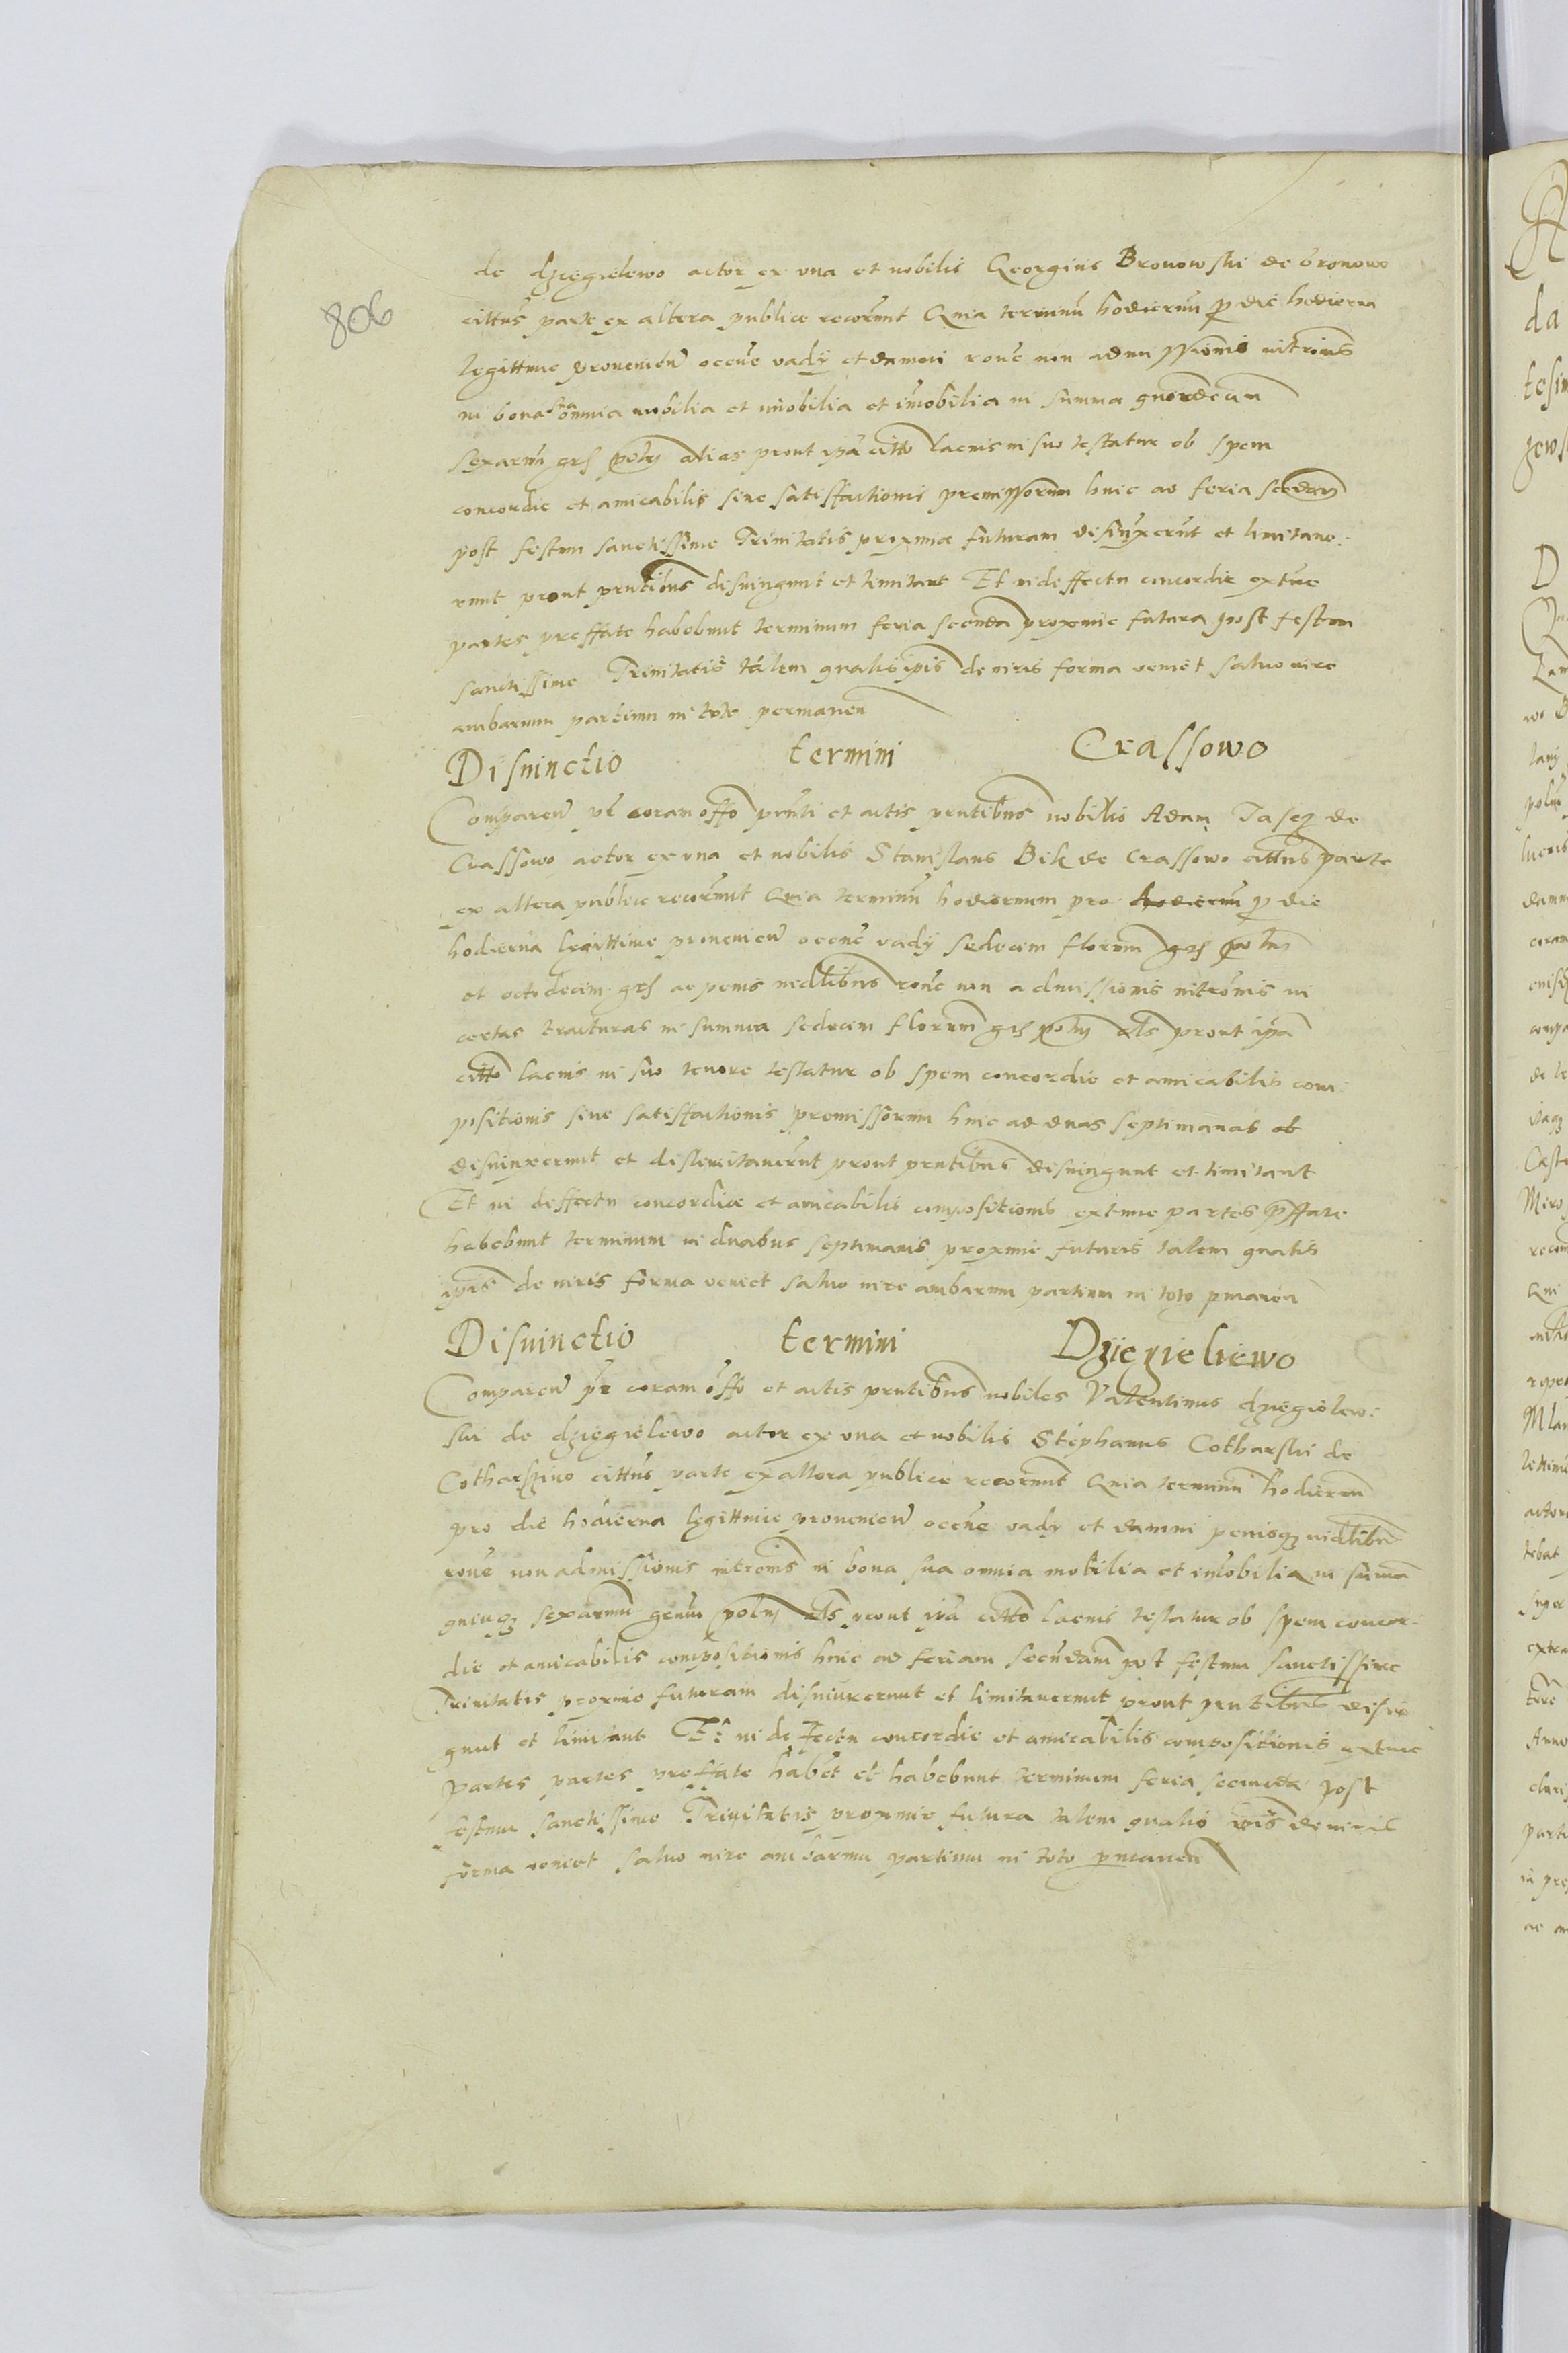 806
de dziegielewo actor ex una et nobilis Georgius Bronowski de Bronowo
cittus parte ex altera publice recorunt Quia terminu hodiernu p die hodierna
legittime provenien occne vadij et damni rone non admissionis intromis
in bona sua omnia mobilia et inobilia et imobilia in summa quordecim
sexarum grs poln alias prout ipa citto lacius in suo testatur ob spem
concordie et amicabilis sine satisfactionis premissorum hinc ad feria secdam
post festum sanctissime Trinitatis proxime futuram disiuxerut et limitave:
runt prout prntibus disiungunt et limitant Et in deffectu concordie extunc
partes preffate habebunt terminum feria secunda proxime futura post festum
sanctissime Trinitatis talem qualis ipis de iuris forma veniet salvo iure
ambarum partium in toto permanen
Disiunctio termini Crassowo
Comparen pr coram offo pnti et actis prntibus nobilis Adam Jaseg de
Crassowo actor ex una et nobilis Stanislaus Bik de Crassowo cittus parte
ex altera publice recorunt Quia terminu hodiernum pro hodiernu p die
hodierna legittime provenien occne vadij sedecim florenu grs poln
et octodecim grs ac penis inclibus rone non admissionis intromis in
certas tracturas in summa sedecim florenu grs poln als prout ipa
citto lacius in suo tenore testatur ob spem concordie et amicabilis com:
positionis sive satisfactionis premissorum hinc ad duas septimanas ob
disiunxerunt et dislimitaverut prout prntibus disiungunt et limitant
Et in deffectu concordie et amicabilis compositionis extunc partes pffate
habebunt terminum in duabus septimanis proxime futuris talem qualis
ipis de iuris forma veniet salvo iure ambarum partium in toto pmanen
Disiunctio termini Dziegieliewo
Comparen pr coram offo et actis prntibus nobiles Valentinus dziegielew:
ski de dziegielewo actor ex una et nobilis Stephanus Cotharski de
Cotharszino cittus parte ex altera publice recorunt Quia terminu hodiernu
pro die hodierna legittime provenien occne vadij et damni penisq inclibus
rone non admissionis intromis in bona sua omnia mobilia et imobilia in suma
quinqz sexarum grnu poln als prout ipa citto lacius testatur ob spem concor:
die et amicabilis compositionis hinc ad feriam secundam post festum sanctissime
Trinitatis proxime futuram disiunxerunt et limitaverunt prout prntibus disiu
gunt et limitant Et in defectu concordie et amicabilis compositionis extunc
partes partes preffate habet et habebunt terminum feria secunda post
festum sanctissime Trinitatis proxime futura talem qualis ipis de iuris
forma veniet salvo iure ambarum partium in toto pmanen